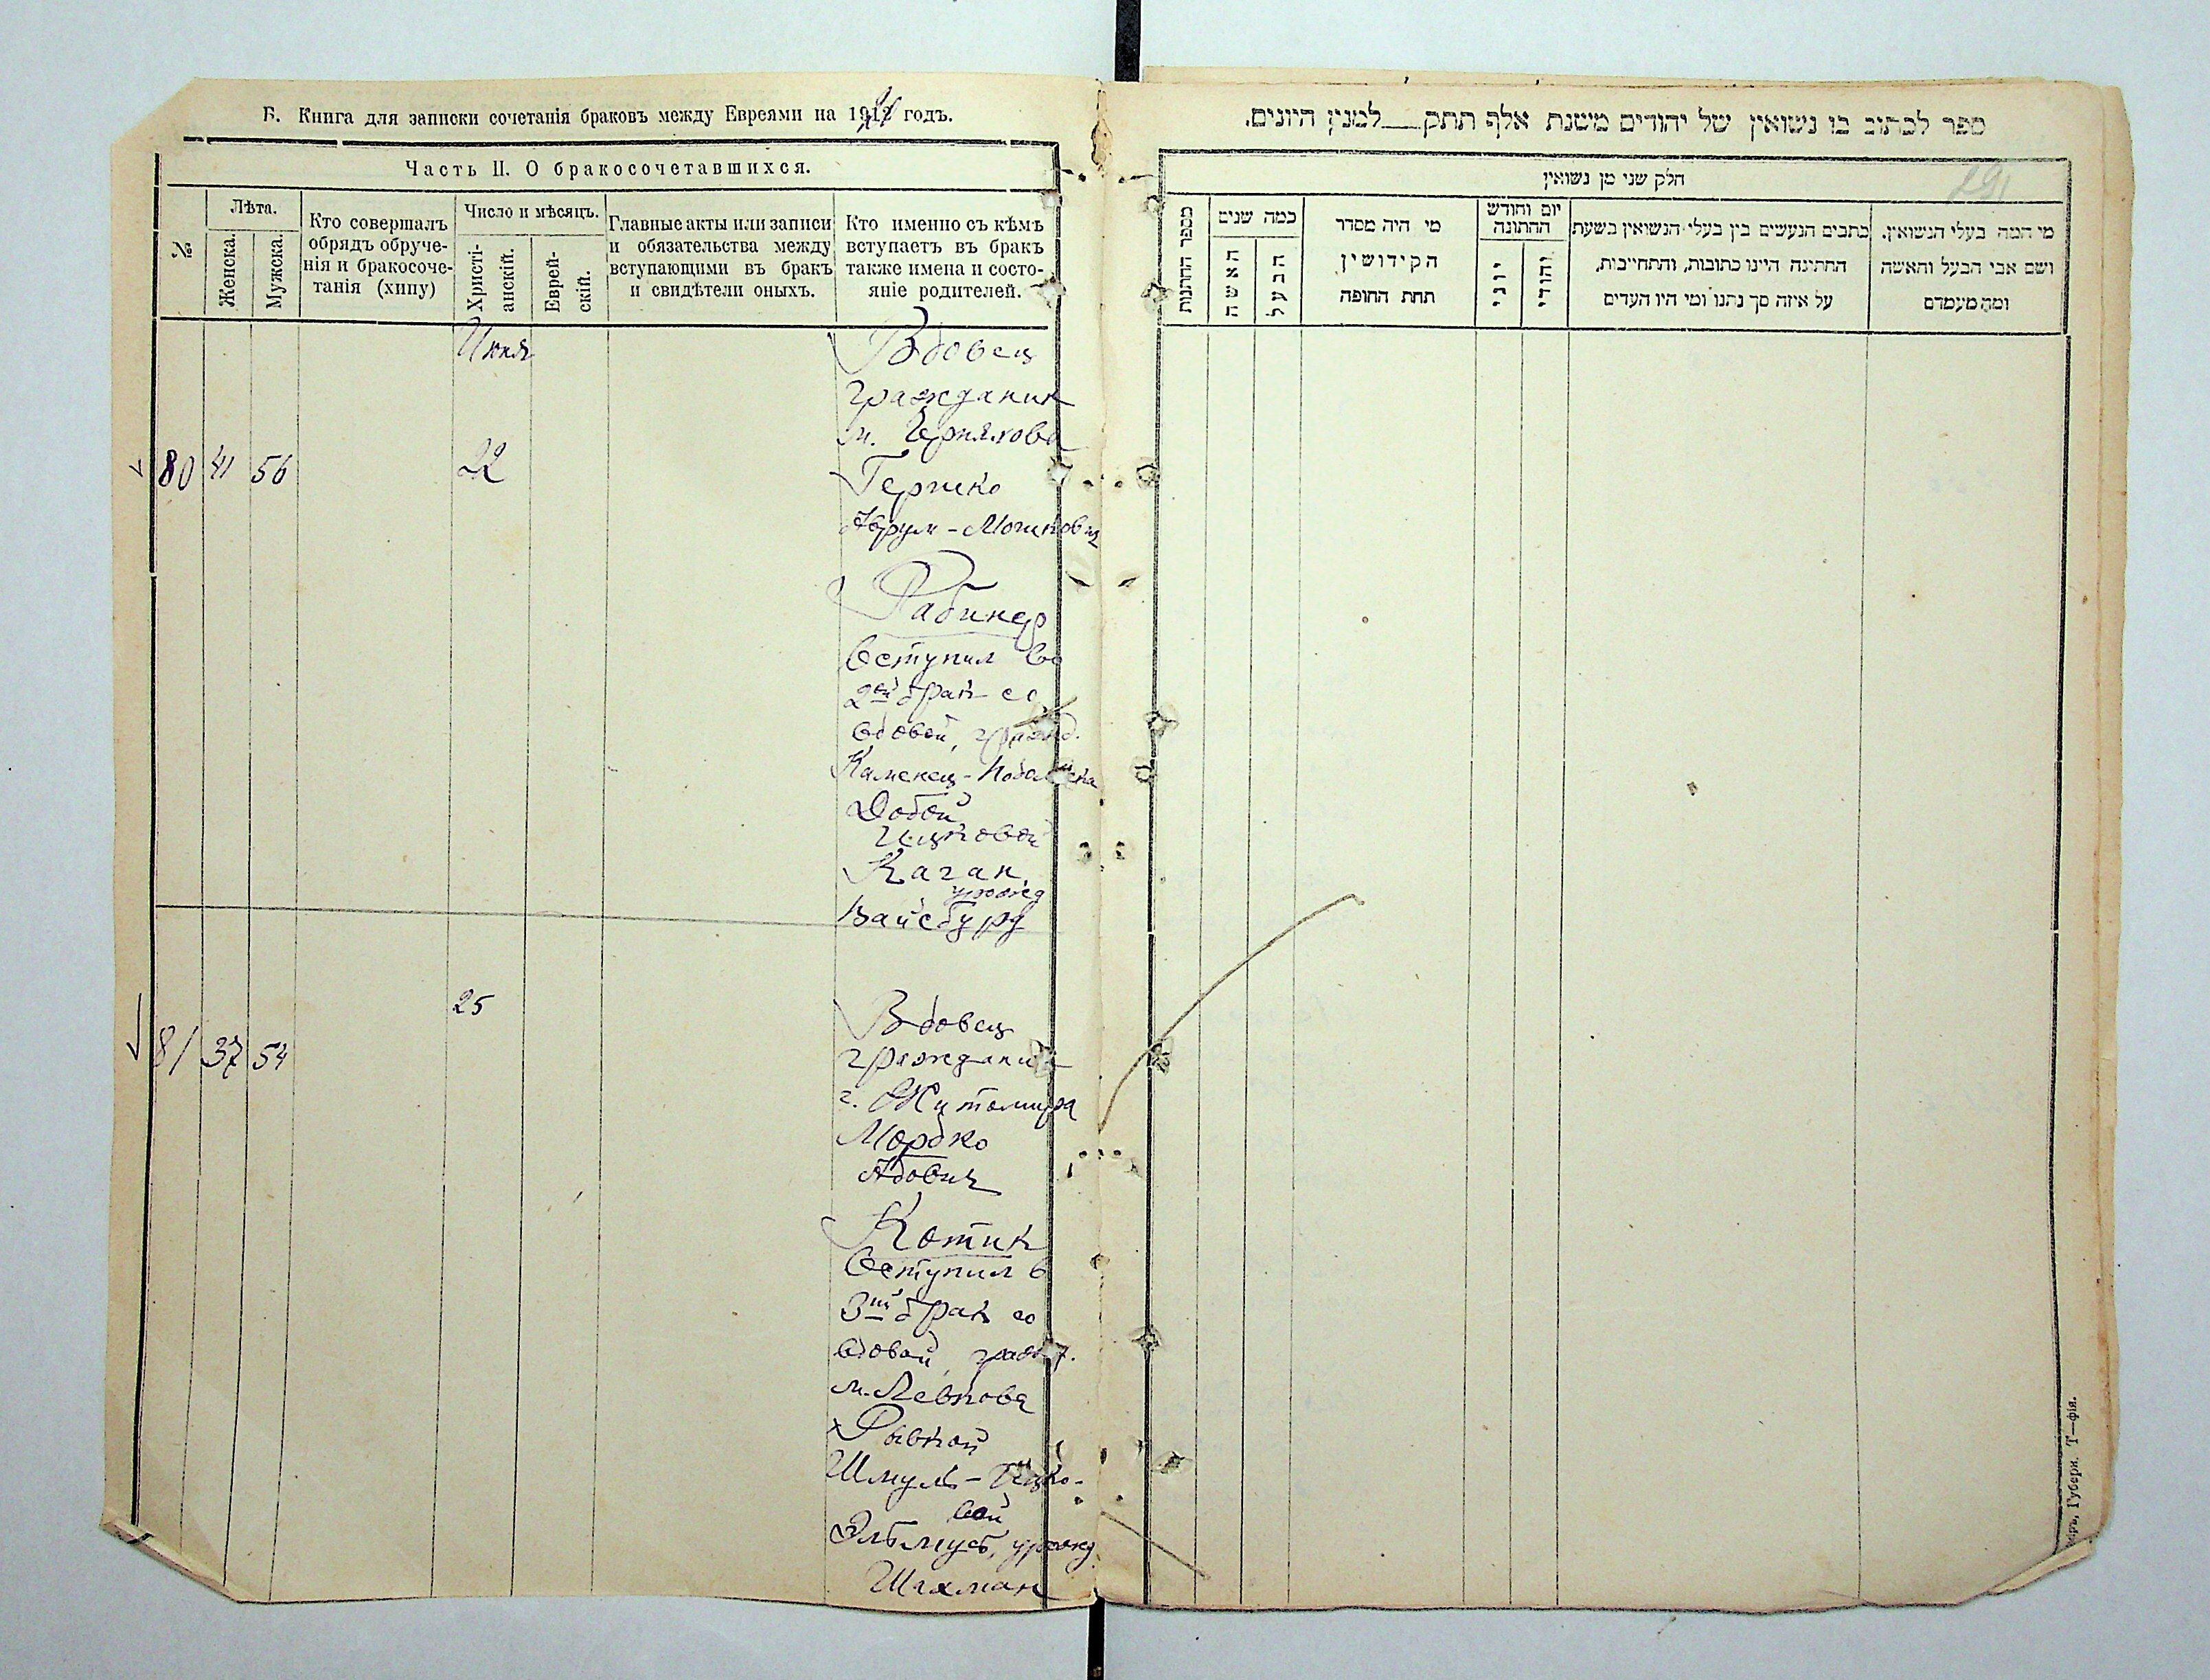 Б. Книга для записки сочетанія браковъ между Евреями на 191 годъ.
Часть II. О бракосочетавшихся.
№
Лѣта.
Женска.
Мужска.
Кто совершалъ
обрядъ обруче-
нія и бракосоче-
танія (хипу)
Число и мѣсяцъ.
Христі-
анскій.
Еврей-
скій.
Главные акты или записи
и обязательства между
вступающими въ бракъ
и свидѣтели оныхъ.
Кто именно съ кѣмъ
вступаетъ въ бракъ
также имена и состо-
яніе родителей.
Июня
80 41 56 22
Вдовец
гражданин
м. Черняхова
Гершко
Аврум-Мошкович
Рабинер
вступил во
2ой брак со
вдовой, гражд.
Каменец-Подольска
Добой
Ицковой
Каган,
урожд
Вайсбурд
81 37 54 25
Вдовец
гражданин
г. Житомира
Мордко
Котик
вступил в
3ий брак со
вдовой, гражд.
м. Левкова
Рывкой
Шмуль-Ицко-
вой
урожд
Шахман
ספר לכתוב בו נשואין של יהודים משנת אלף תתק__למנין היונים.
291
חלק שני מן נשואין
מספר החתנות
כמה שנים
האשה
הבעל
מי היה מסדר
הקידושין
תחת החופה
יום וחודש
החתונה
יוני
יהודי
כתבים הנעשים בין בעלי הנשואין בשעת
החתונה היינו כתובות, והתחייבות,
על איזה סך נתנו ומי היו העדים
מי המה בעלי הנשואין.
ושם אבי הבעל והאשה
ומה מעמדם
Губерн. Т—фія.